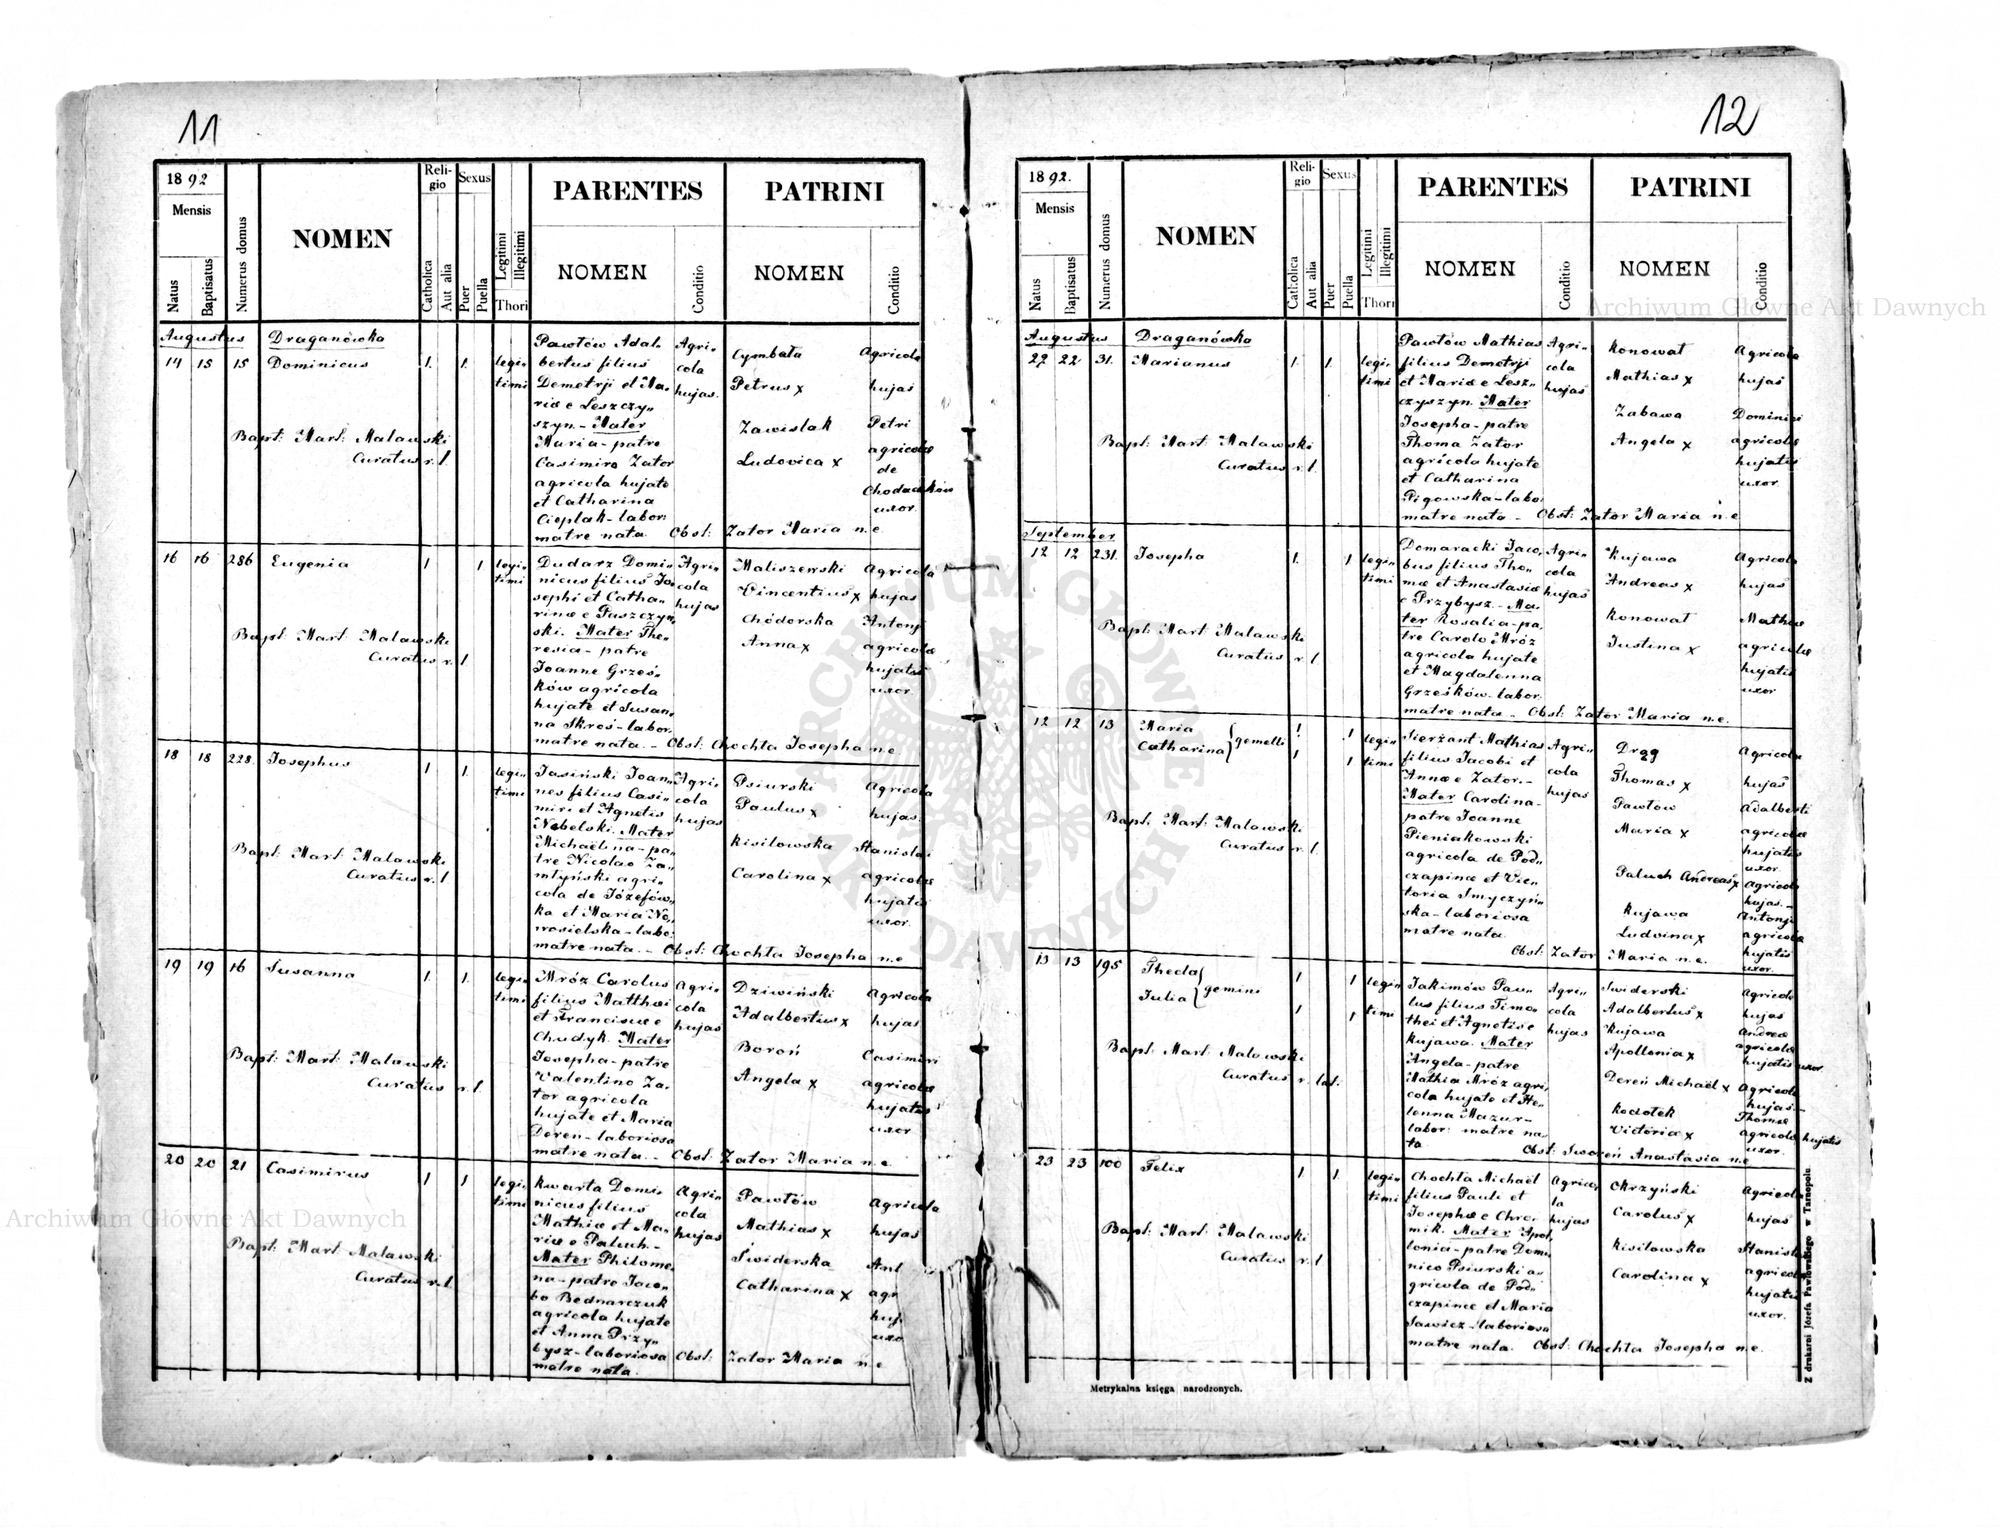 11
1892
Mensis
Natus
Baptisatus
Numerus domus
NOMEN
Religio
Catholica
Aut alia
Sexus
Puer
Puella
Legitimi
Illegitimi
Thori
PARENTES
NOMEN
Conditio
PATRINI
NOMEN
Conditio
Augustus Draganówka
14 15 15 Dominicus 1. 1. legitimi
Bapt: Mart: Malawski
Curatus r. l.
Pawłów Adal-
bertus filius
Demetrji et Ma-
riæ e Leszczy-
szyn - Mater
Maria - patre
Casimiro Zator
agricola hujate
et Catharina
Cieplak - labor:
matre nata. Obst: Zator Maria n. e
Agri-
cola
hujas.
Cymbała
Petrus x
Zawislak
Ludovica x
Agricola
hujas
Petri
agricolæ
de
Chodaczków
uxor.
16 16 286 Eugenia 1 1 legitimi
Bapt: Mart: Malawski
Curatus r. l.
Dudarz Domi-
nicus filius Jo-
sephi et Catha-
rinæ e Puszczyn-
ski. Mater The-
resia - patre
Joanne Grześ-
ków agricola
hujate et Susan-
na Skroś - labor.
matre nata. - Obst: Chochta Josepha n. e
Agri-
cola
hujas
Maliszewski
Vincentius x
Chódorska
Anna x
Agricola
hujas
Antonji
agricolæ
hujatis
uxor.
18 18 228. Josephus 1 1. legitimi
Bapt: Mart: Malawski
Curatus r. l
Jasiński Joan-
nes filius Casi-
miri et Agnetis
Nebelski. Mater
Michaëlina - pa-
tre Nicolao Za-
młyński agri-
cola de Józefów-
ka et Maria No-
wosielska - labo:
matre nata. - Obst: Chochta Josepha n. e
Agri-
cola
hujas
Psiurski
Paulus x
Kisilowska
Carolina x
Agricola
hujas.
Stanislai
agricolæ
hujatis
uxor.
19 19 16 Susanna 1 1. legitimi
Bapt: Mart: Malawski
Curatus r. l.
Mróz Carolus
filius Matthæi
et Franciscæ e
Chudyk. Mater
Josepha - patre
Valentino Za-
tor agricola
hujate et Maria
Dereń - laboriosa
matre nata. - Obst: Zator Maria n. e
Agri-
cola
hujas
Dziwiński
Adalbertus x
Boroń
Angela x
Agricola
hujas
Casimiri
agricolæ
hujatis
uxor
20 20 21 Casimirus 1 1 legitimi
Bapt: Mart: Malawski
Curatus r. l.
Kwarta Domi-
nicus filius
Mathiæ et Ma-
riæ e Paluch. -
Mater Philome-
na - patre Jaco-
bo Bednarczuk
agricola hujate
et Anna Przy-
bysz - laboriosa
matre nata. Obst: Zator Maria n. e
Agri-
cola
hujas
Pawłów
Mathias x
Świderska
Catharina x
Agricola
hujas
Ant
agr
huj
uxo
12
1892.
Mensis
Natus
Baptisatus
Numerus domus
NOMEN
Religio
Catholica
Aut alia
Sexus
Puer
Puella
Legitimi
Illegitimi
Thori
PARENTES
NOMEN
Conditio
PATRINI
NOMEN
Conditio
Augustus Draganówka
22 22 31. Marianus 1. 1. legitimi
Bapt: Mart: Malawski
Curatus r. l.
Pawłów Mathias
filius Demetrji
et Mariæ e Lesz-
czyszyn. Mater
Josepha - patre
Thoma Zator
agricola hujate
et Catharina
Pigowska - labo:
matre nata - Obst: Zator Maria n. e
Agri-
cola
hujas
Konował
Mathias x
Zabawa
Angela x
Agricola
hujas
Dominici
agricolæ
hujatis
uxor.
September
12 12 231. Josepha 1. 1 legitimi
Bapt: Mart: Malawski
Curatus r. l.
Domaracki Jaco-
bus filius Tho-
mæ et Anastasiæ
e Przybysz. - Ma-
ter Rosalia - pa-
tre Carolo Mróz
agricola hujate
et Magdalenna
Grześków - labor.
matre nata - Obst: Zator Maria n. e.
Agri-
cola
hujas
Kujawa
Andreas x
Konował
Justina x
Agricola
hujas
Mathiæ
agricolæ
hujatis
uxor
12 12 13 Maria
Catharina } gemelli 1 1 1 1 legitimi
Bapt: Mart: Malawski
Curatus r. l.
Sierżant Mathias
filius Jacobi et
Annæ e Zator. -
Mater Carolina -
patre Joanne
Pieniakowski
agricola de Pod-
czapince et Vic-
toria Smyczyń-
ska - laboriosa
matre nata
Obst: Zator Maria n. e.
Agri-
cola
hujas
Drąg
Thomas x
Pawłów
Maria x
Paluch Andreas x
Kujawa
Ludvina x
Agricola
hujas
Adalberti
agricolæ
hujatis
uxor.
Agricola
hujas. -
Antonji
agricolæ
hujatis
uxor.
13 13 195 Thecla
Julia } gemini 1 1 1 1 legitimi
Bapt: Mart: Malawski
Curatus r. lat.
Jakimów Pau-
lus filius Timo-
thei et Agnetis e
Kujawa. Mater
Angela - patre
Mathia Mróz agri-
cola hujate et He-
lenna Mazur -
labor: matre na-
ta Obst: Sworeń Anastasia n. e
Agri-
cola
hujas
Swiderski
Adalbertus x
Kujawa
Apollonia x
Dereń Michaël x
Kociołek
Victoria x
Agricola
hujas
Andreæ
agricolæ
hujatis uxor.
Agricola
hujas -
Thomæ
agricolæ hujatis
uxor.
23 23 100 Felix 1 1. legitimi
Bapt: Mart: Malawski
Curatus r. l
Chochta Michaël
filius Pauli et
Josephæ e Chro-
mik. Mater Apol-
lonia - patre Domi-
nico Psiurski a-
gricola de Pod-
czapince et Maria
Sawicz - laboriosa
matre nata. Obst: Chochta Josepha n. e.
Agrico-
la
hujas
Okrzyński
Carolus x
Kisilowska
Carolina x
Agricola
hujas
Stanislai
agricolæ
hujatis
uxor.
Metrykalna księga narodzonych.
Z drukarni Józefa Pawłowskiego w Tarnopolu
Archiwum Główne Akt Dawnych
Archiwum Główne Akt Dawnych
ARCHIWUM GŁÓWNE AKT DAWNYCH